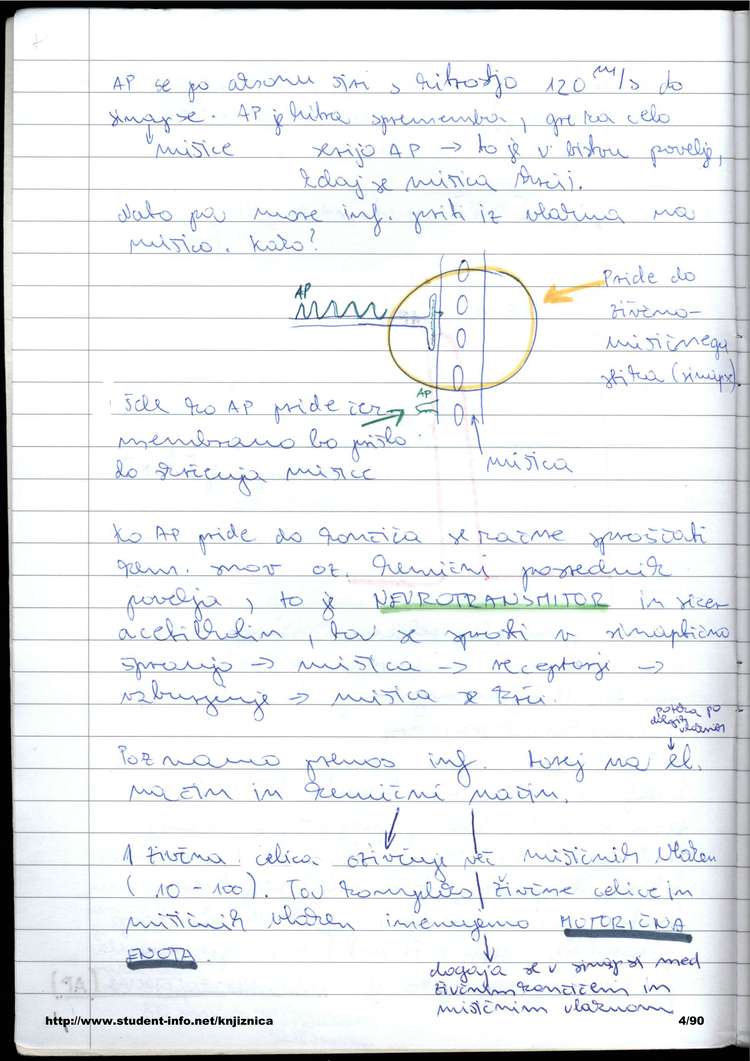 AP se po aksonu širi s hitrostjo 120 m/s do
sinapse. AP je hitra sprememba, gre za celo
mišice serijo AP → to je v bistvu povelje,
kdaj se mišica skrči.
Nato pa more inf. priti iz vlakna na
mišico. Kako?
AP
Pride do
živčno-
mišičnega
stika (sinapse)
AP
Šele ko AP pride čez
membrano bo prišlo
do skrčenja mišice
mišica
Ko AP pride do končiča se začne sproščati
kem. snov oz. kemični posrednik
povelja, to je NEVROTRANSMITOR in sicer
acetilholin, ta se sprosti v sinaptično
špranjo → mišica → receptorji →
vzburjenje → mišica se krči.
poteka po
dolgih
vlaknih
Poznamo prenos inf. torej na el.
način in kemični način.
1 živčna celica oživčuje več mišičnih vlaken
(10 - 100). Ta kompleks živčne celice in
mišičnih vlaken imenujemo MOTORIČNA
ENOTA.
dogaja se v sinapsi med
živčnim končičem in
mišičnim vlaknom
http://www.student-info.net/knjiznica
4/90